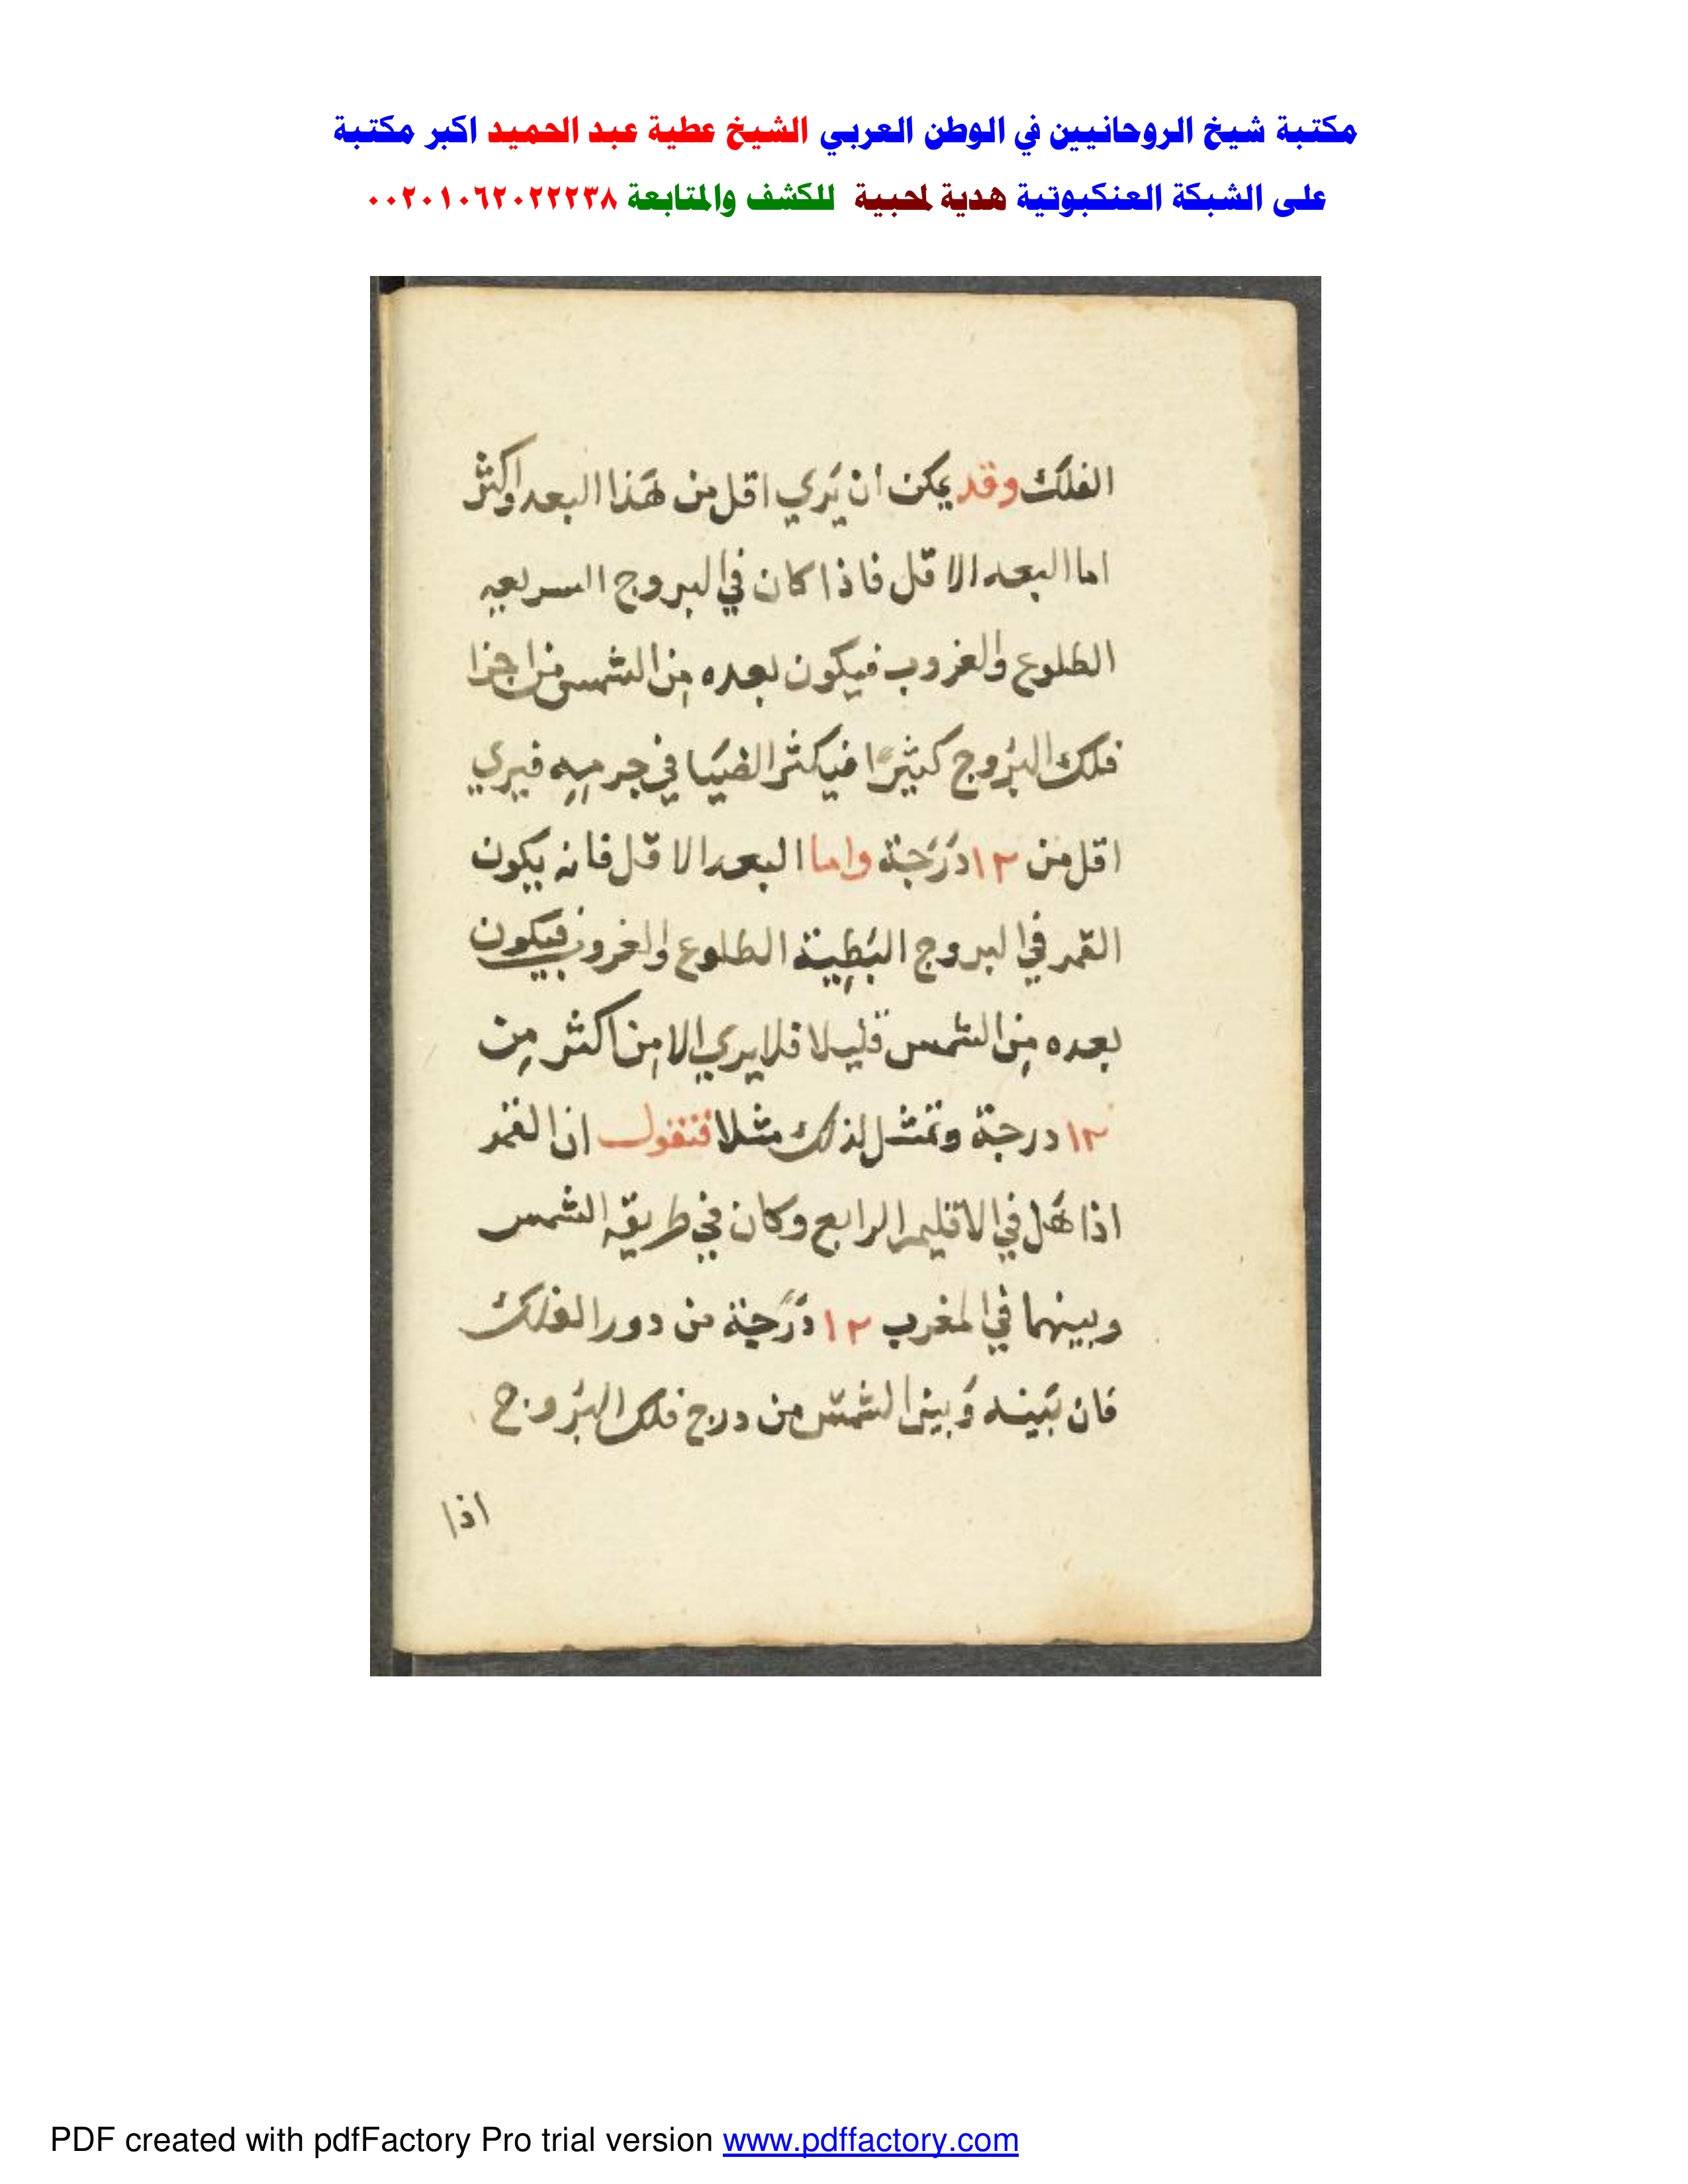 مكتبة شيخ الروحانيين في الوطن العربي الشيخ عطية عبد الحميد اكبر مكتبة
على الشبكة العنكبوتية هدية لمحبية للكشف والمتابعة ٠٠٢٠١٠٦٢٠٢٢٢٣٨
الفلك وقد يمكن ان يَري اقل من هَذا البعد واكثر
اما البعد الاقل فاذا كان في البروج السريعه
الطلوع والغروب فيكون بعده مِن الشمس من اجزا
فلك البرُوج كثيرًا فيكثر الضيَا في جرمِهِ فيري
اقل من ١٢ دَرَجَة واما البعد الاقل فانه يكون
القمر في البروج البَطِيية الطلوع والغروب فيَكون
بعده مِن الشمس قليلا فلا يري الا مِن اكثر مِن
١٢ درجة ونمثل لذلك مثلا فنقول ان القمر
اذا هَل في الاقليم الرابع وكان في طريقه الشمس
وبينهما في المغرب ١٢ دَرَجَة من دور الفلك
فان بَينه وَبين الشمس من درج فلك البرُوج
اذا
PDF created with pdfFactory Pro trial version www.pdffactory.com